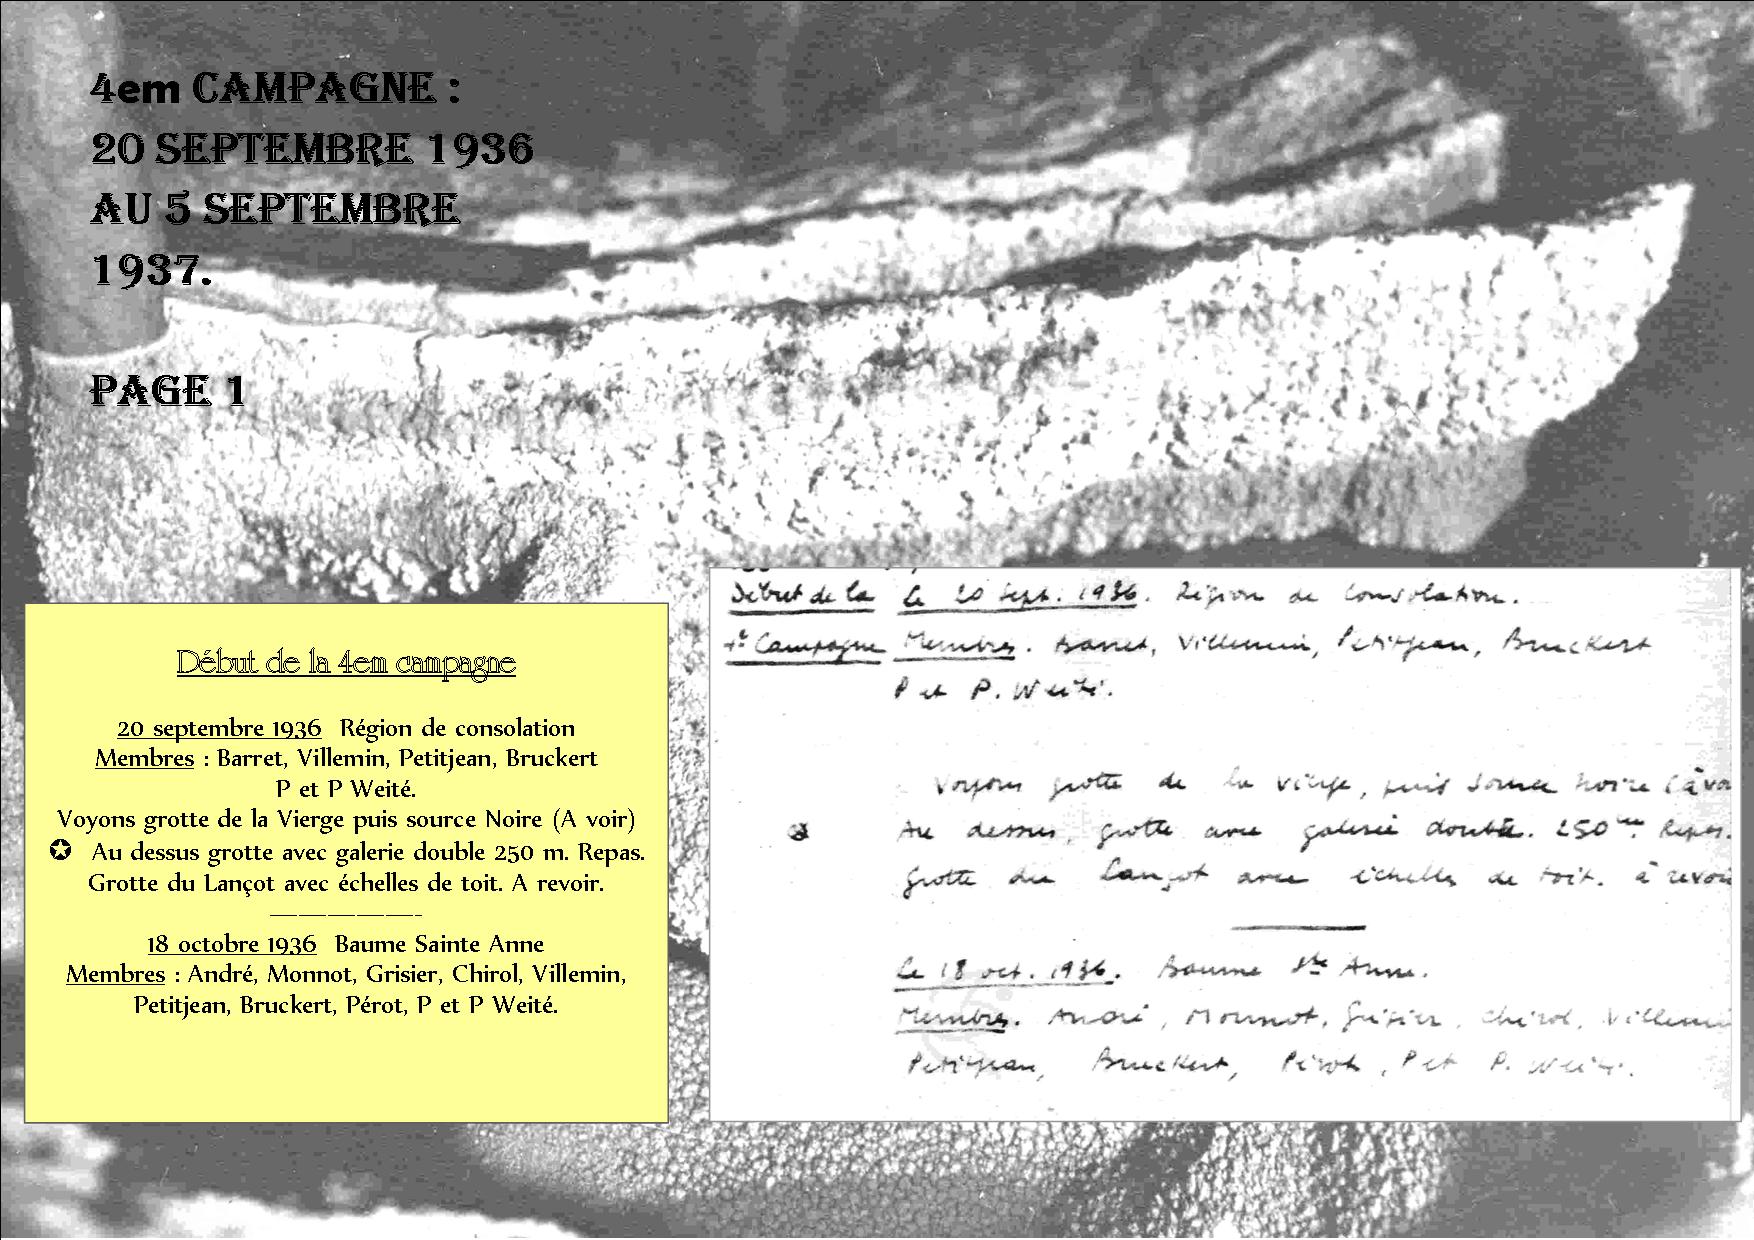 4em CAMPAGNE :
20 SEPTEMBRE 1936
AU 5 SEPTEMBRE
1937.
PAGE 1
Début de la 4em campagne
20 septembre 1936 Région de consolation
Membres : Barret, Villemin, Petitjean, Bruckert
P et P Weité.
Voyons grotte de la Vierge puis source Noire (A voir)
✪ Au dessus grotte avec galerie double 250 m. Repas.
Grotte du Lançot avec échelles de toit. A revoir.
18 octobre 1936 Baume Sainte Anne
Membres : André, Monnot, Grisier, Chirol, Villemin,
Petitjean, Bruckert, Pérot, P et P Weité.
Début de la Le 20 Sept. 1936. Région de Consolation.
4e Campagne Membres. Barret, Villemin, Petitjean, Bruckert
P et P. Weité.
Voyons grotte de la vierge, puis source noire (à voi
Au dessus, grotte avec galerie double. 250 m. Repas.
grotte du Lançot avec échelles de toit. à revoi
Le 18 oct. 1936. Baume Ste Anne.
Membres. André, Monnot, Grisier, Chirol, Villemin
Petitjean, Bruckert, Pérot, P et P. Weité.